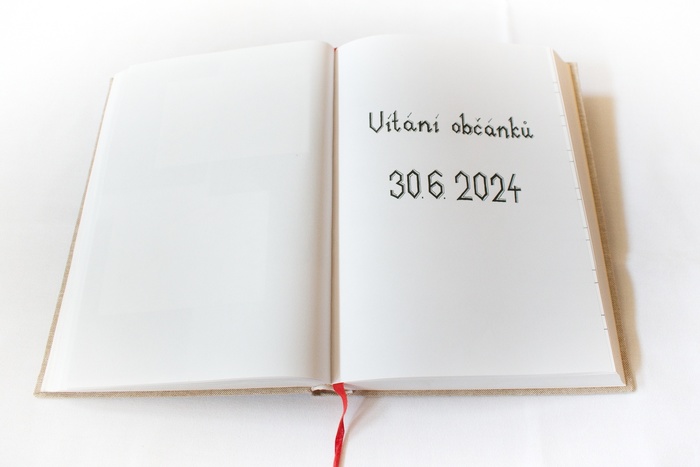 Vítání občánků
30.6. 2024